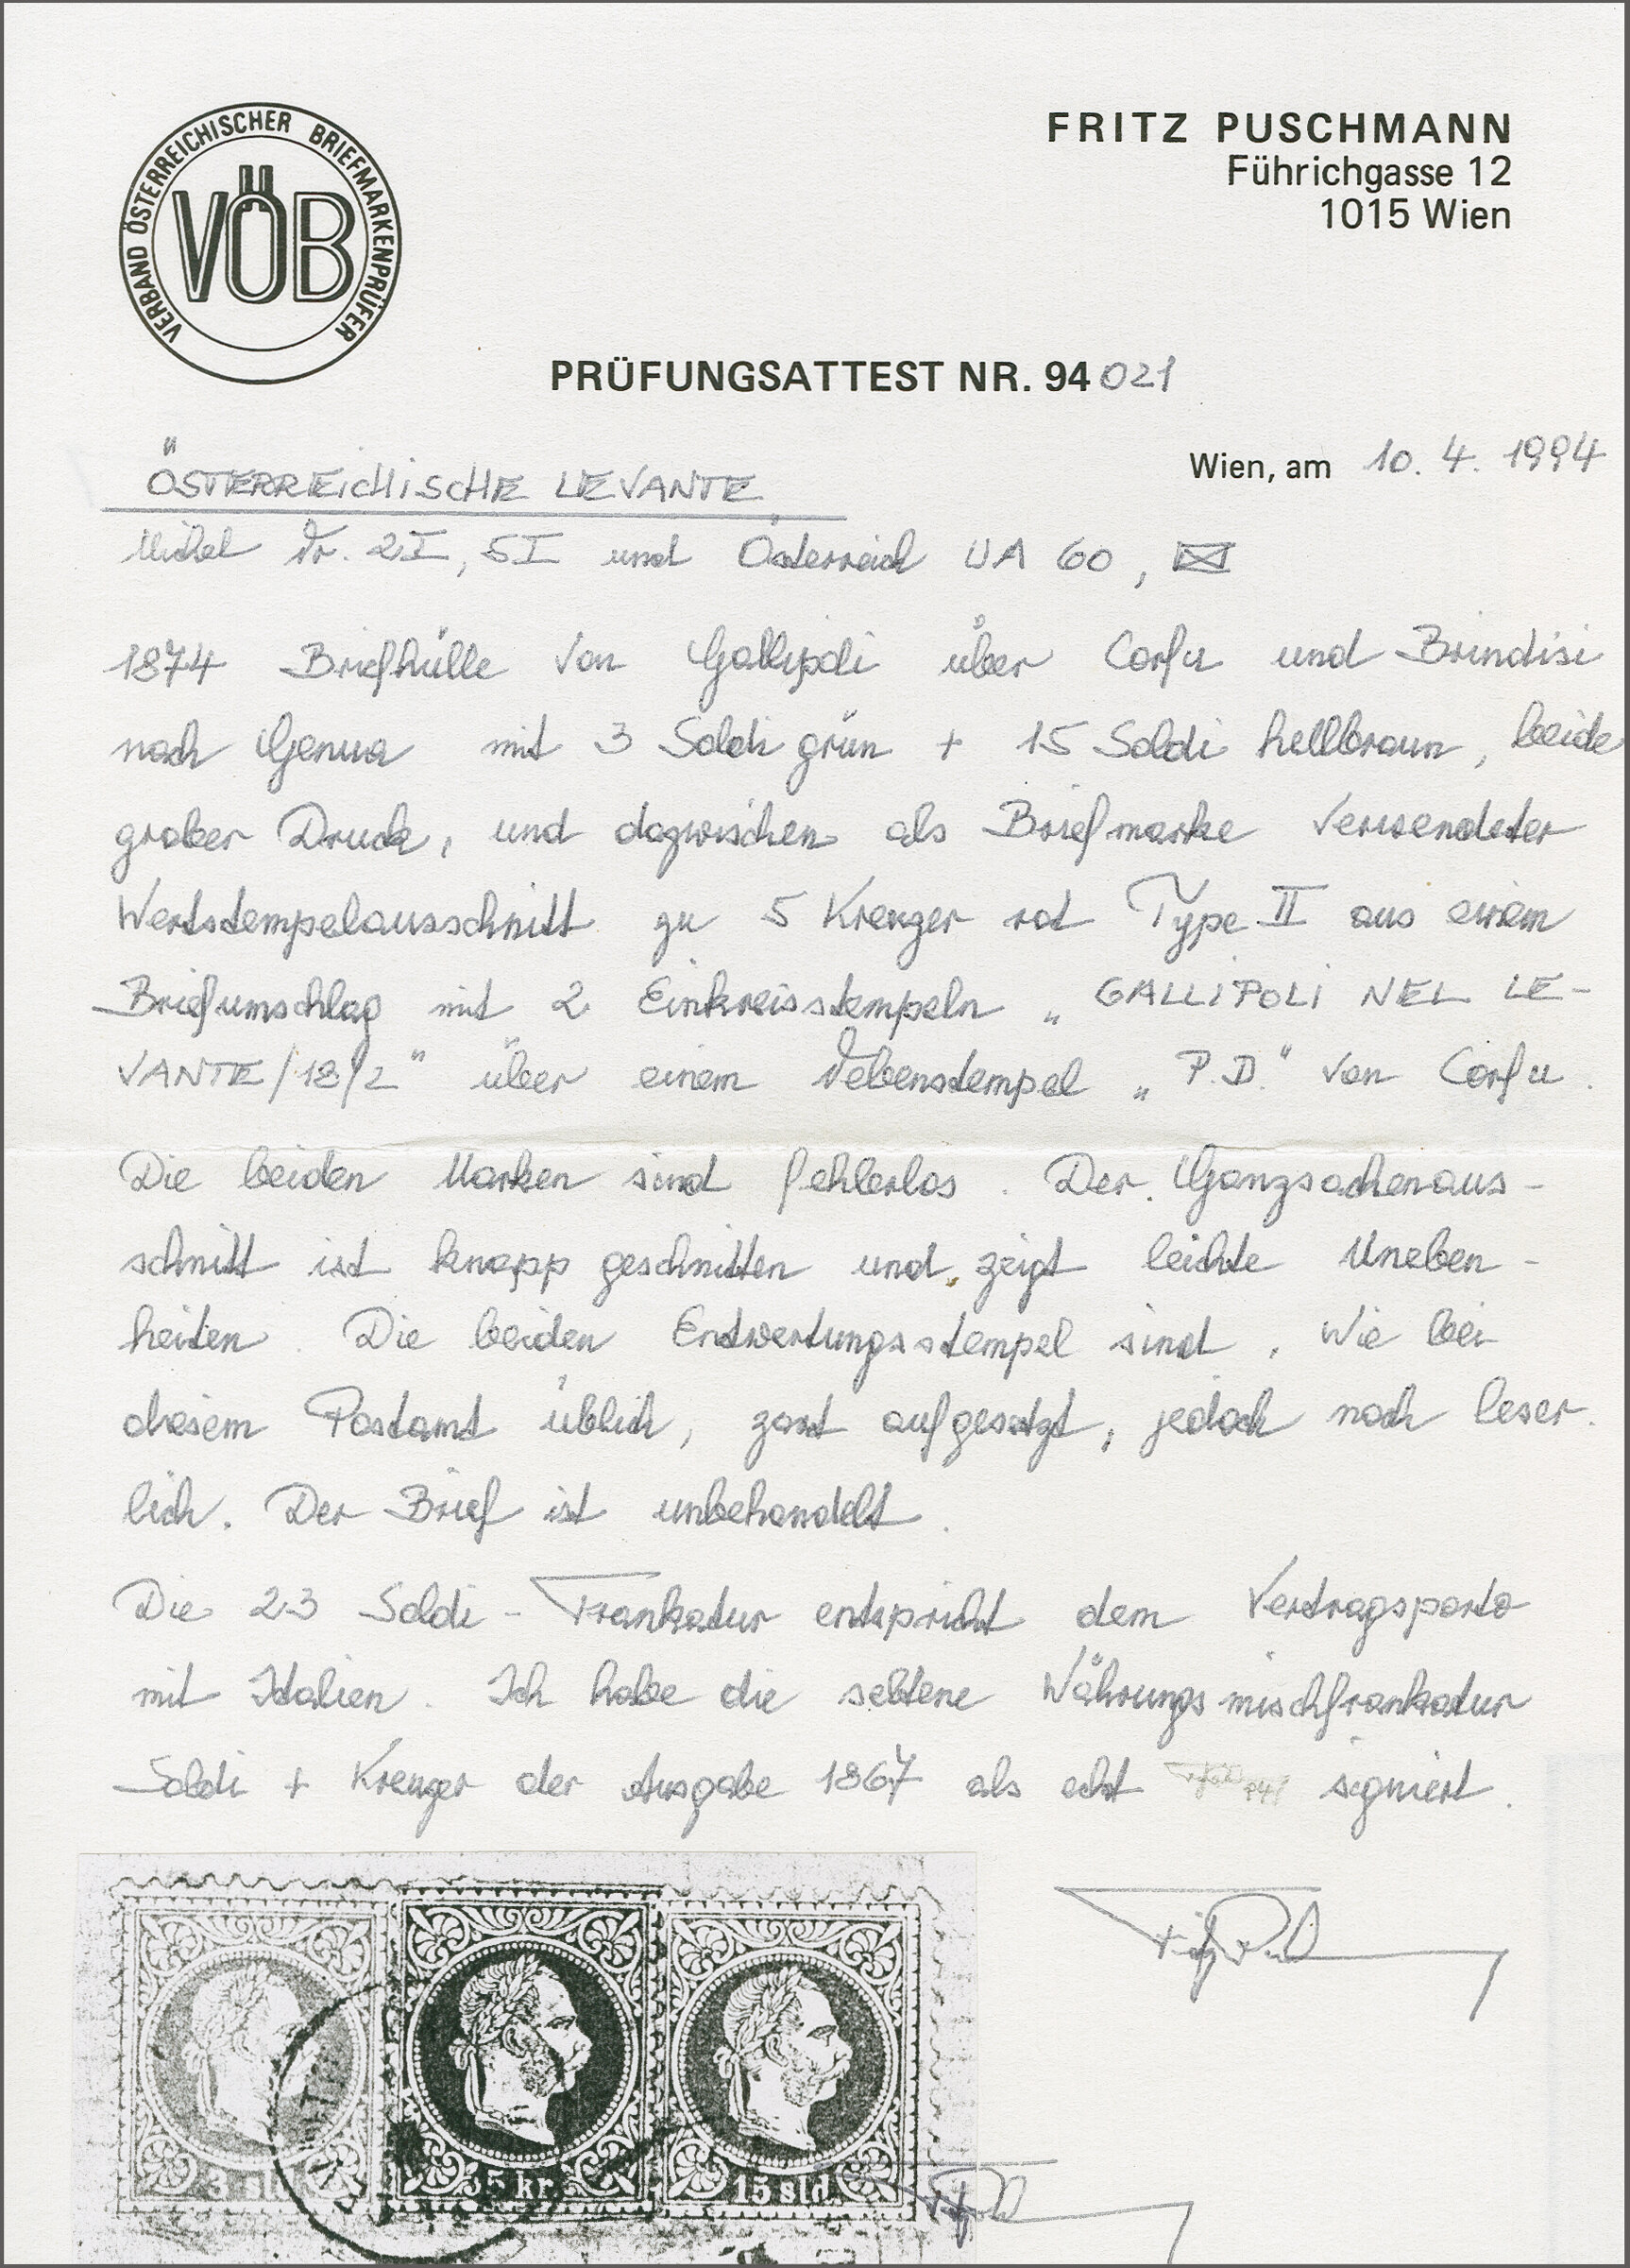 VERBAND ÖSTERREICHISCHER BRIEFMARKENPRÜFER
VÖB
FRITZ PUSCHMANN
Führichgasse 12
1015 Wien
PRÜFUNGSATTEST NR. 94 021
Wien, am 10. 4. 1994
ÖSTERREICHISCHE LEVANTE
Michel Nr. 2I, 5I und Österreich UA 60,
1874 Briefhülle von Gallipoli über Corfu und Brindisi
nach Genua mit 3 Soldi grün + 15 Soldi hellbraun, beide
grober Druck, und dazwischen als Briefmarke verwendeter
Wertstempelausschnitt zu 5 Kreuzer rot Type II aus einem
Briefumschlag mit 2 Einkreisstempeln „GALLIPOLI NEL LE-
VANTE/18/2" über einem Nebenstempel „P.D." von Corfu.
Die beiden Marken sind fehlerlos. Der Ganzsachenaus-
schnitt ist knapp geschnitten und zeigt leichte Uneben-
heiten. Die beiden Entwertungsstempel sind, wie bei
diesem Postamt üblich, zart aufgesetzt, jedoch noch leser-
lich. Der Brief ist unbehandelt.
Die 23 Soldi-Frankatur entspricht dem Vertragsporto
mit Italien. Ich habe die seltene Währungsmischfrankatur
Soldi + Kreuzer der Ausgabe 1867 als echt signiert.
3 sld. 5 kr. 15 sld.